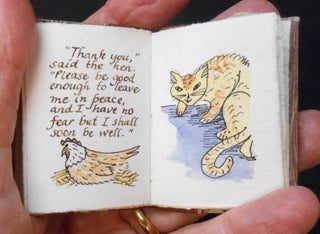 "Thank you,"
said the hen.
"Please be good
enough to leave
me in peace,
and I have no
fear but I shall
soon be well."